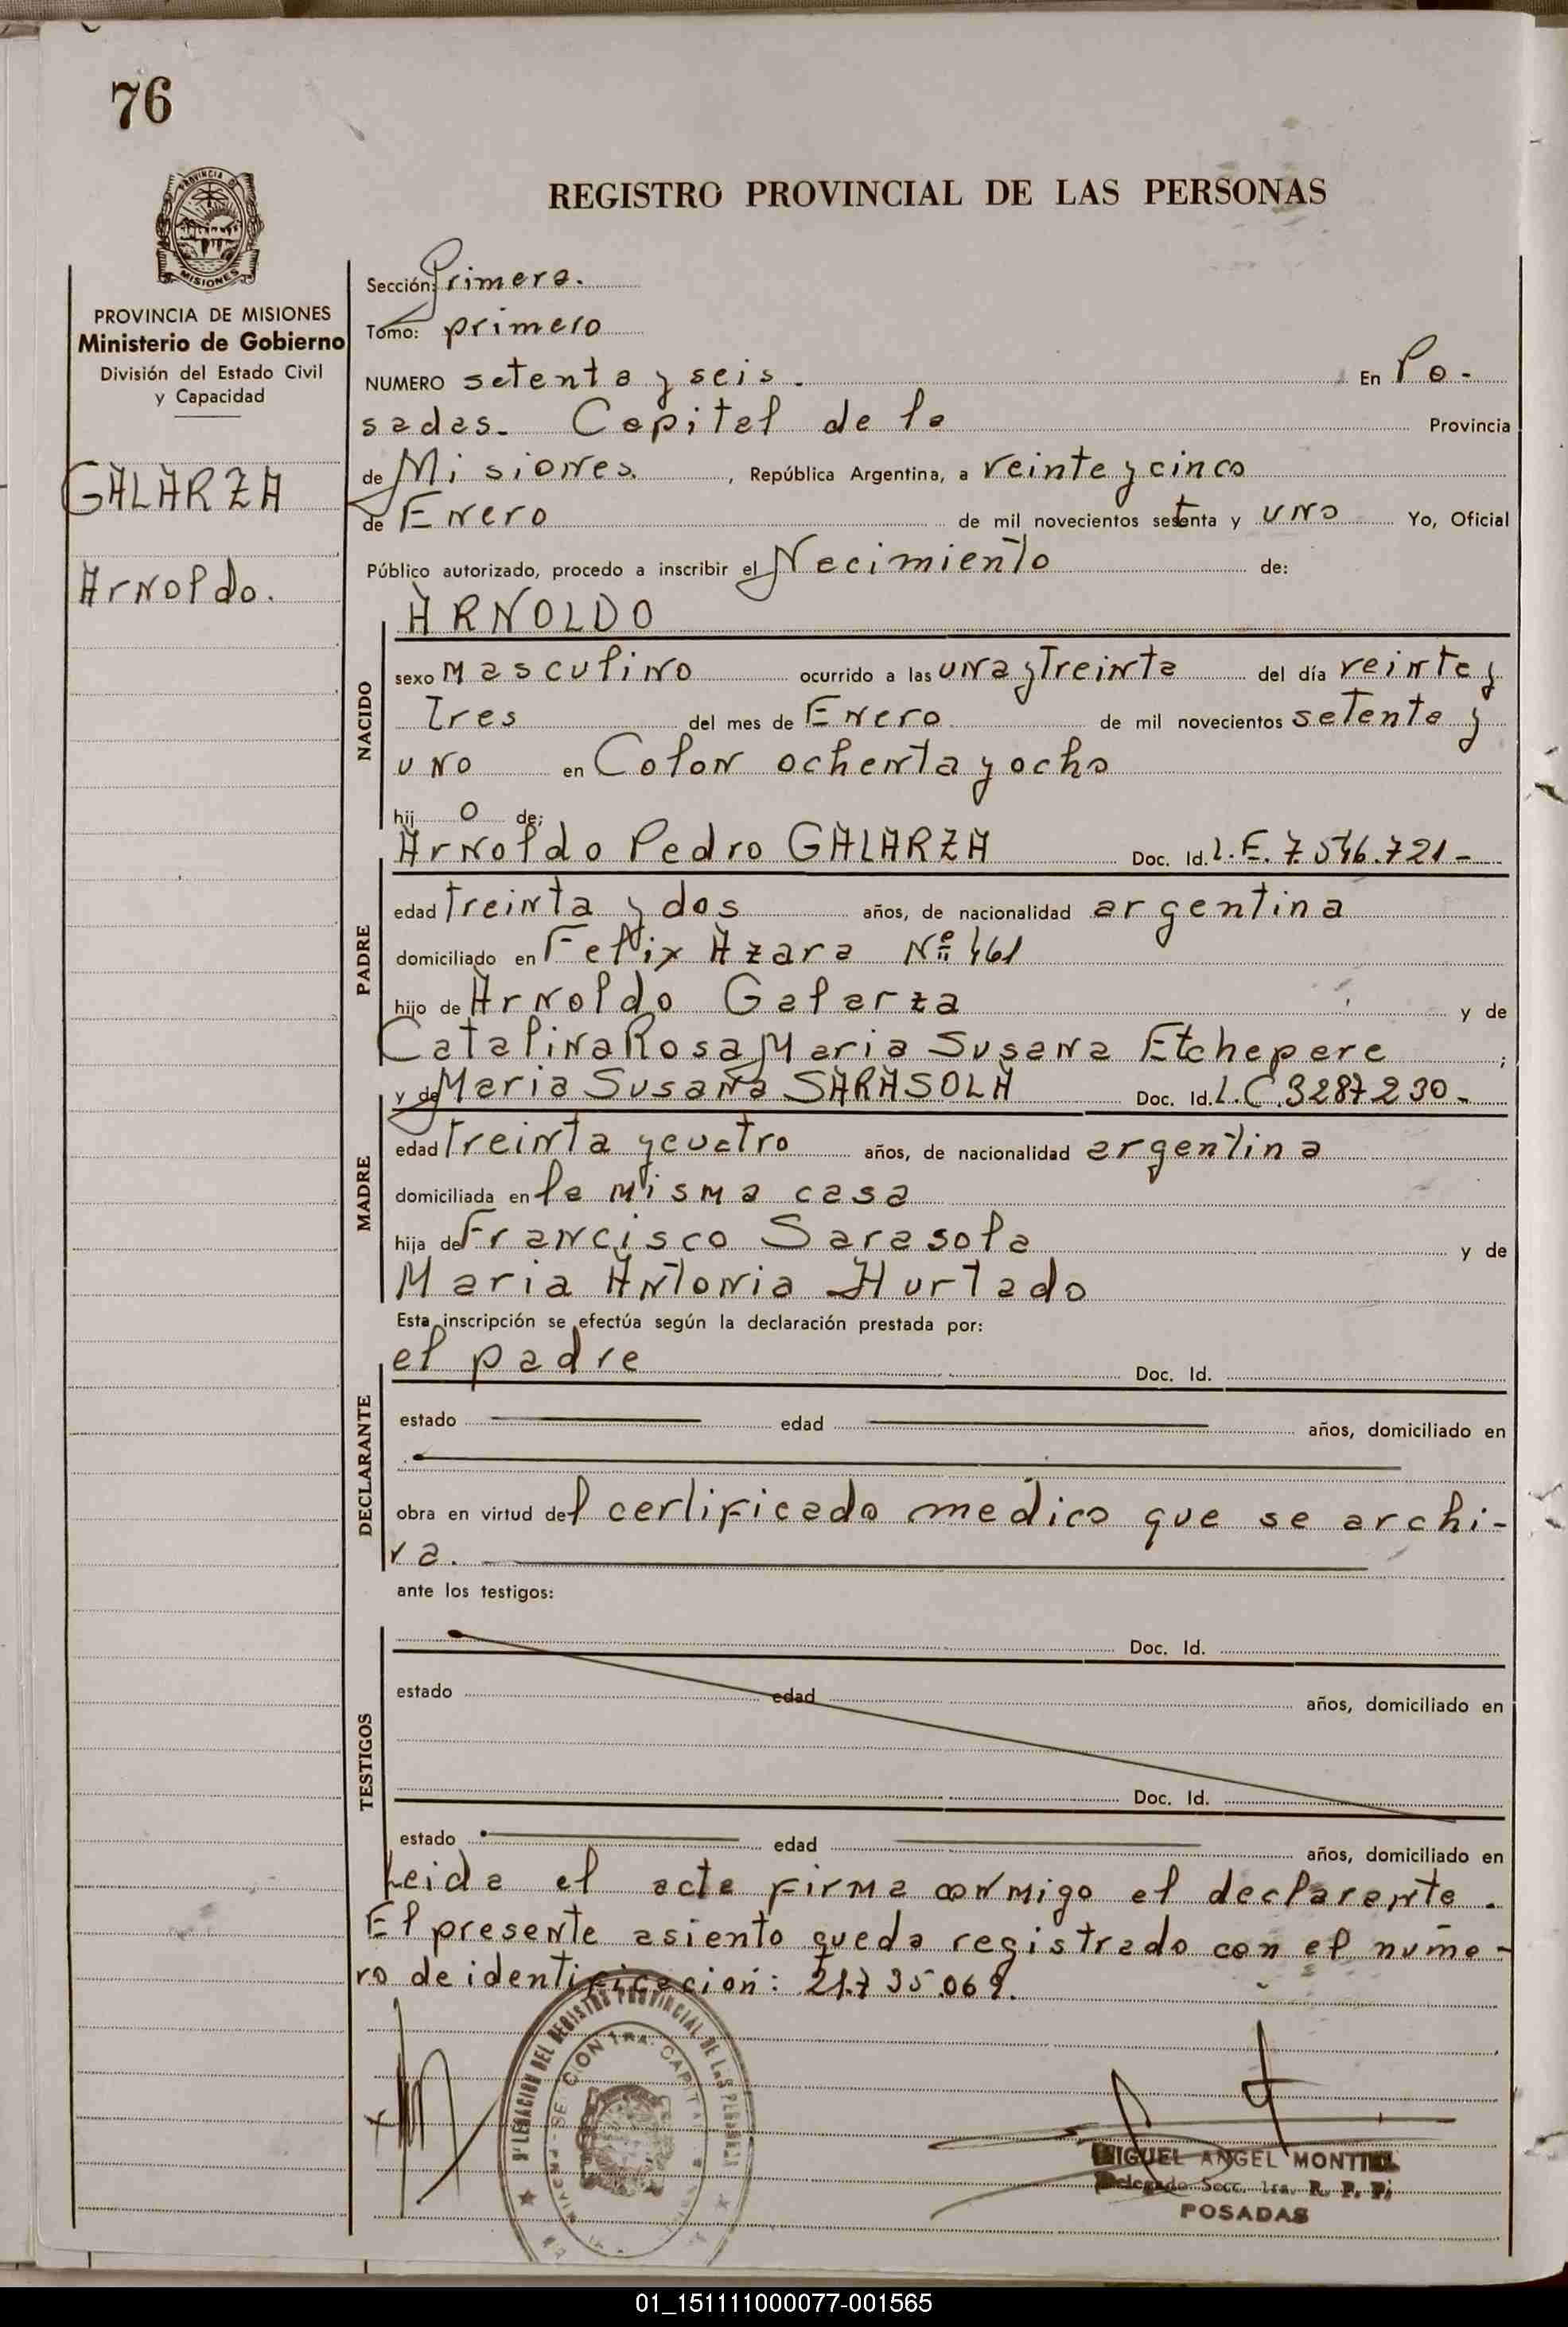 76
PROVINCIA DE
MISIONES
REGISTRO PROVINCIAL DE LAS PERSONAS
PROVINCIA DE MISIONES
Ministerio de Gobierno
División del Estado Civil
y Capacidad
GALARZA
Arnoldo.
Sección: Primera.
Tomo: primero
NUMERO setenta y seis. En Po-
sadas. Capital de la Provincia
de Misiones, República Argentina, a veinte y cinco
de Enero de mil novecientos setenta y uno Yo, Oficial
Público autorizado, procedo a inscribir el Nacimiento de:
ARNOLDO
NACIDO
sexo masculino ocurrido a las una y Treinta del día veinte y
Tres del mes de Enero de mil novecientos setenta y
uno en Colon ochenta y ocho
hijo de:
Arnoldo Pedro GALARZA Doc. Id. L.E. 7.546.721-
PADRE
edad Treinta y dos años, de nacionalidad argentina
domiciliado en Felix Azara Nº 461
hijo de Arnoldo Galarza y de
Catalina Rosa Maria Susana Etchepare;
y de Maria Susana SARASOLA Doc. Id. L.C. 3287230-
MADRE
edad Treinta y cuatro años, de nacionalidad argentina
domiciliada en la misma casa
hija de Francisco Sarasola y de
Maria Antonia Hurtado
Esta inscripción se efectúa según la declaración prestada por:
el padre Doc. Id.
DECLARANTE
estado edad años, domiciliado en
obra en virtud del certificado medico que se archi-
va.
ante los testigos:
Doc. Id.
TESTIGOS
estado edad años, domiciliado en
Doc. Id.
estado edad años, domiciliado en
Leida el acta firma conmigo el declarante.
El presente asiento queda registrado con el núme-
ro de identificación: 21.735.069.
DEL REGISTRO PROVINCIAL DE LAS PERSONAS
MIGUEL ANGEL MONTIEL
Delegado Secc. 1ra. R. P. P.
POSADAS
01_151111000077-001565